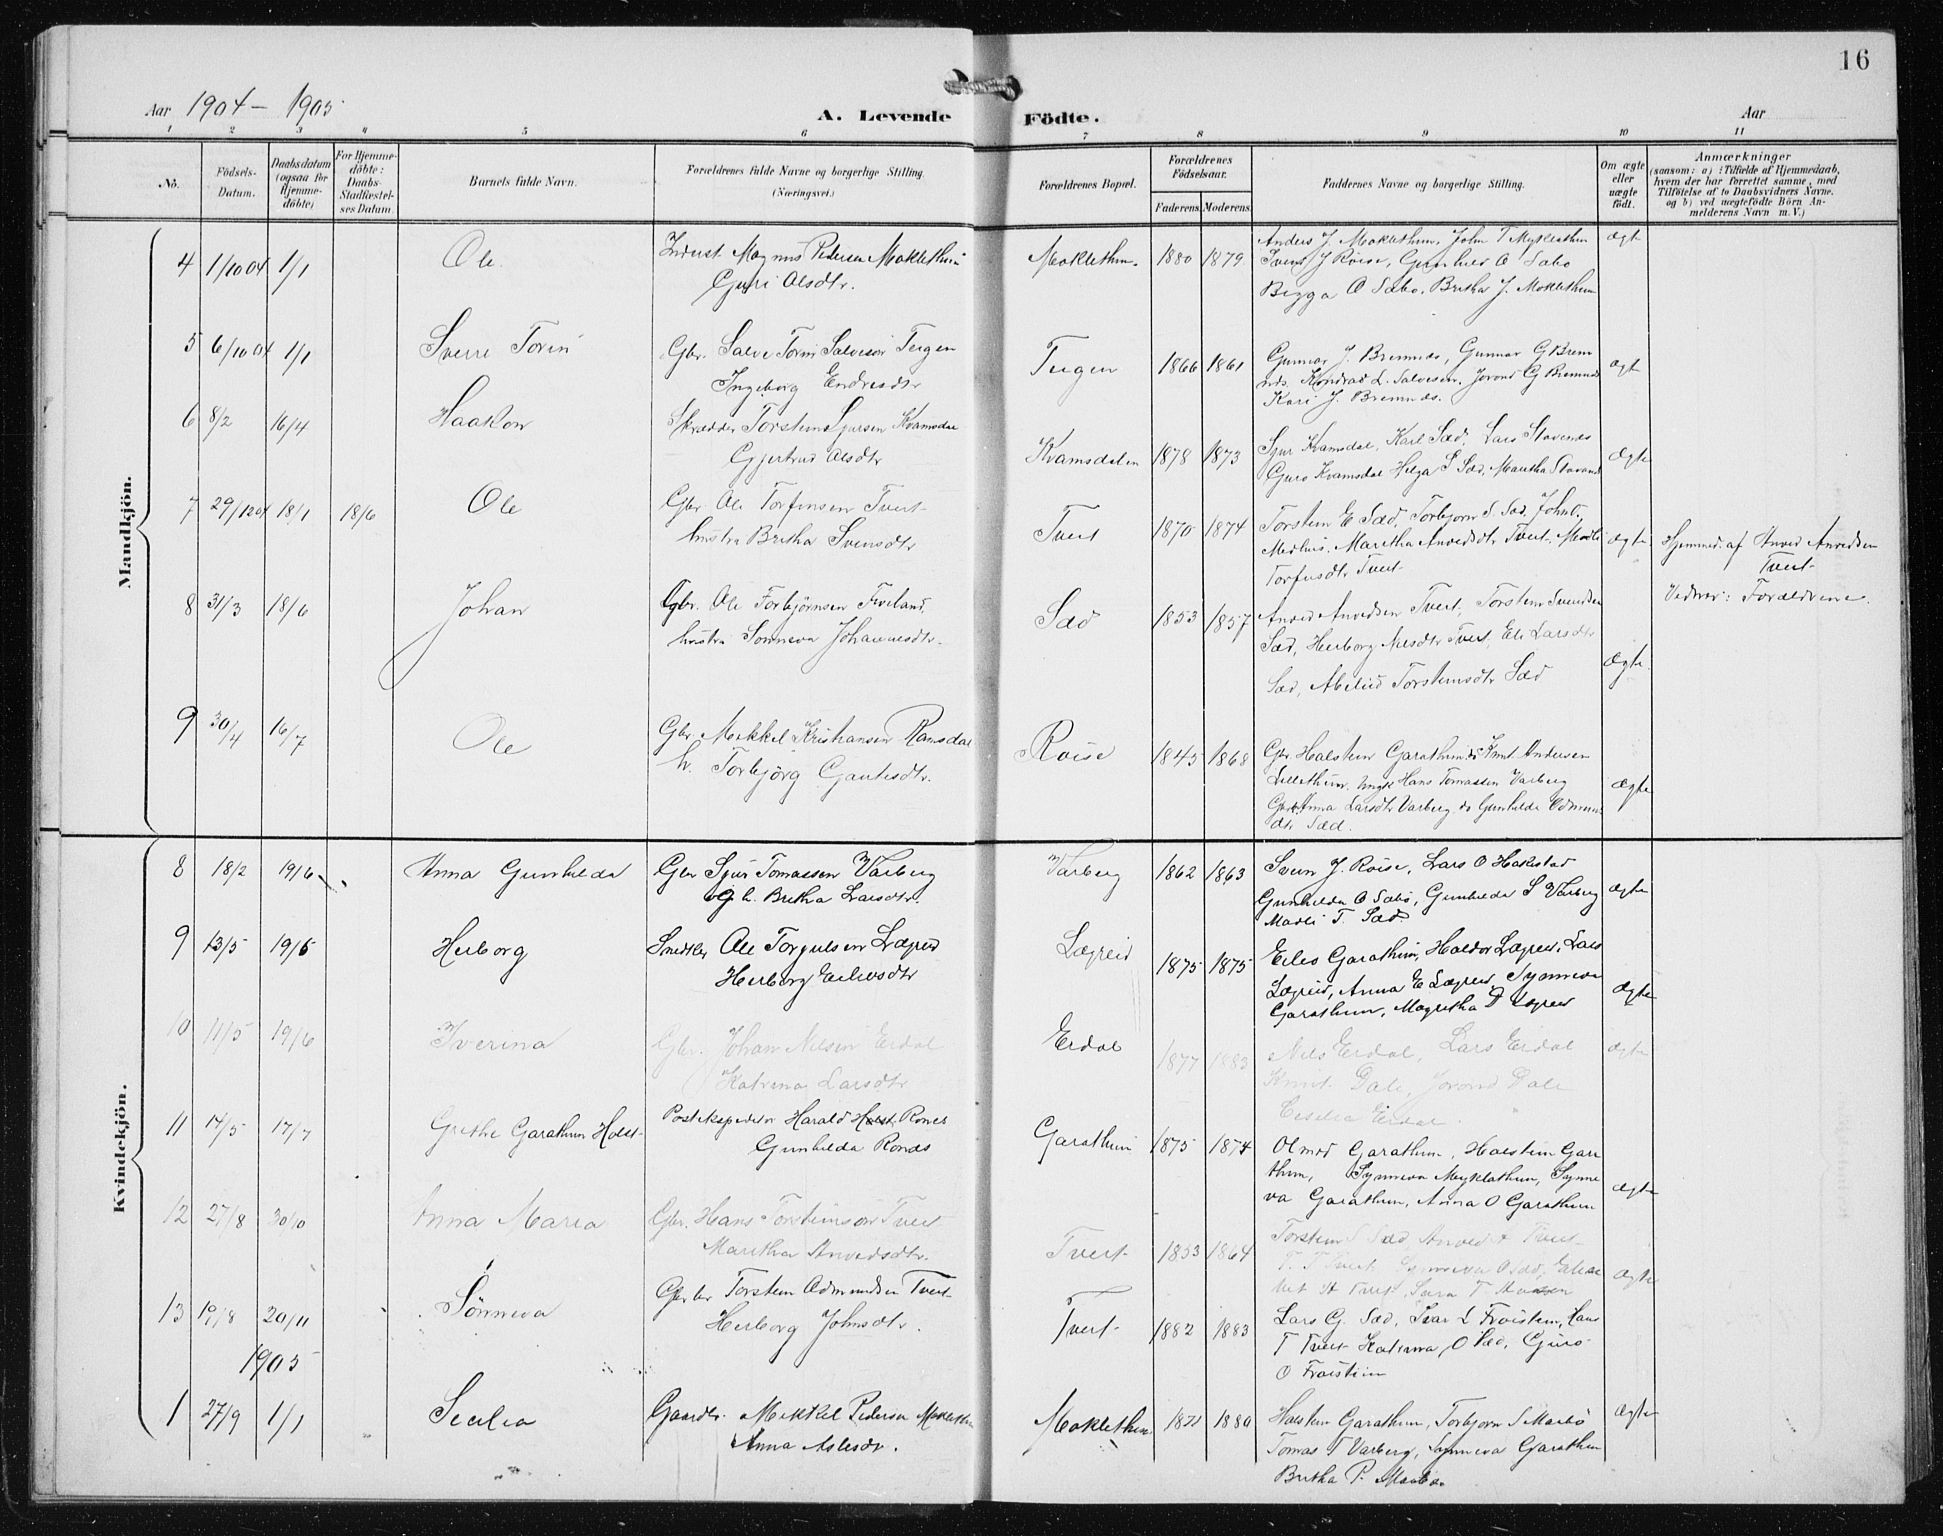 16
Aar 1904 – 1905
A. Levende Födte.
Aar
1 2 3 4 5 6 7 8 9 10 11
No.
Födsels-
Datum.
Daabsdatum
(ogsaa for
Hjemme-
döbte)
For Hjemme-
döbte:
Daabs-
Stadfæstel-
ses Datum
Barnets fulde Navn.
Forældrenes fulde Navne og borgerlige Stilling.
(Næringsvei.)
Forældrenes Bopæl.
Forældrenes
Födselsaar.
Faderens Moderens
Faddernes Navne og borgerlige Stilling.
Om ægte
eller
uægte
födt.
Anmærkninger
(saasom: a) i Tilfælde af Hjemmedaab,
hvem der har forrettet samme, med
Tilföielse af to Daabsvidners Navne.
og b) ved uægtefödte Börn An-
melderens Navn m. V.)
Mandkjön.
4 1/10 04 1/1 Ole
Magnus Pedersen Moklethun
Guri Olsdtr.
Moklethun. 1880 1879
Anders J. Moklethun, John T Myklethun
Iver J Röise, Gunhild O Sæbo
O Sæbo, Britha J. Moklethun
ægt
5 6/10 04 1/1 Sverre Torin
Gbr. Salve Torin Salvesen Teigen
Ingeborg Endresdtr
Teigen 1866 1861
Gunnar J. Bremnes, Gunnar G Brem
nes. Kondrad L. Salvesen, Jorond G Bremnes
Kari J. Bremnes.
ægt
6 8/2 16/4 Haakon
Skrædder Torstein Sjursen Kvamsdal
Gjertrud Olsdtr
Kvamsdalen 1878 1873
Sjur Kvamsdal, Karl Sæd, Lars Stavenes
Guro Kvamsdal Helga S Sæd, Maritha Stavenes
Ægte
7 29/12 04 18/1 18/6 Ole
Gbr Ole Torfinsen Tveit
hustru Britha Svensdtr
Tveit 1870 1874
Torstein E Sæd, Torbjorn S Sæd, John O.
Medhus, Maritha Anvedsdtr Tveit, Madli
Torfinsdtr Tveit
Ægte
Hjemmed. af Anved Anvedsen
Tveit
Vidner: Forældrene.
8 31/3 18/6 Johan
Gbr. Ole Torbjörnsen
hustru Sönneva Johannesdtr.
Sæd 1853 1857
Anved Anvedsen Tveit, Torstein Svendsen
Sæd, Herborg Nilsdtr Tveit, Eli Larsdtr
Sæd, Torsteinsdtr Sæd
Ægte
9 30/4 16/7 Ole
Gbr Mikkel Kristiansen Ramsdal
h. Torbjörg Gautesdtr.
Roise 1845 1868
Gbr Halstein Garathun, Knut Andersen
Lillethun. Ungk Hans Tomassen Varberg
Anna Larsdtr Varberg Gunhilde Odmun
dtr Sæd.
Ægte
Kvindekjön.
8 18/2 19/6 Anna Gunhilda
Gbr Sjur Tomassen Varberg
h. Britha Larsdtr.
Varberg 1862 1863
Svein J. Roise, Lars O Hakestad
Gunhilda O Sæbö, Gunhilda S Varberg
Madli T. Sæd.
Ægte
9 13/5 19/6 Herborg
Ole Torgilsen Lægreid
Herborg Eilevsdtr
Lægreid 1875 1875
Eilev Garathun, Haldor Lægreid, Lars
Lægreid, Anna E Lægreid, Synneva
Garathun, Magretha Lægreid
Ægte
10 11/5 19/6 Iverina
Gbr. Johan Nilsen Erdal
Katrina Larsdtr
Erdal 1877 1883
Nils Erdal, Lars Erdal
Knut Dale, Jorond Dale
Cecelia Erdal.
Ægte
11 14/5 17/7 Grethe Garathun Holst
Postekspeditör Harald Holst Rones
Gunhilda Rones
Garathun 1875 1874
Olmod Garathun, Halstein Gara
thun, Synneva Myklathun, Synne
va Garathun, Anna O Garathun
Ægte
12 27/8 30/10 Anna Maria
Gbr. Hans Torsteinsön Tveit
Maritha Anvedsdtr.
Tveit 1853 1864
Torstein S Sæd, Anved A Tveit
T. T. Tveit, Synneva O Sæd, Elisa
bet H Tveit, Sara T
Ægte
13 19/8 20/11 Sönneva
Torstein Odmundsen Tveit
Herborg Johnsdtr.
Tveit 1882 1883
Lars G. Sæd, Ivar L Froistein, Hans
T Tveit Katrina O Sæd, Guro
O Froistein
1905
1 27/9 1/1 Secilia
Gaardbr. Mikkel Pedersen Moklethun
Anna Aslesdr.
Moklethun 1871 1880
Halstein Garathun, Torbjorn S Maabö
Tomas T Varberg, Synneva Garathun
Britha P. Maabö.
Ægte